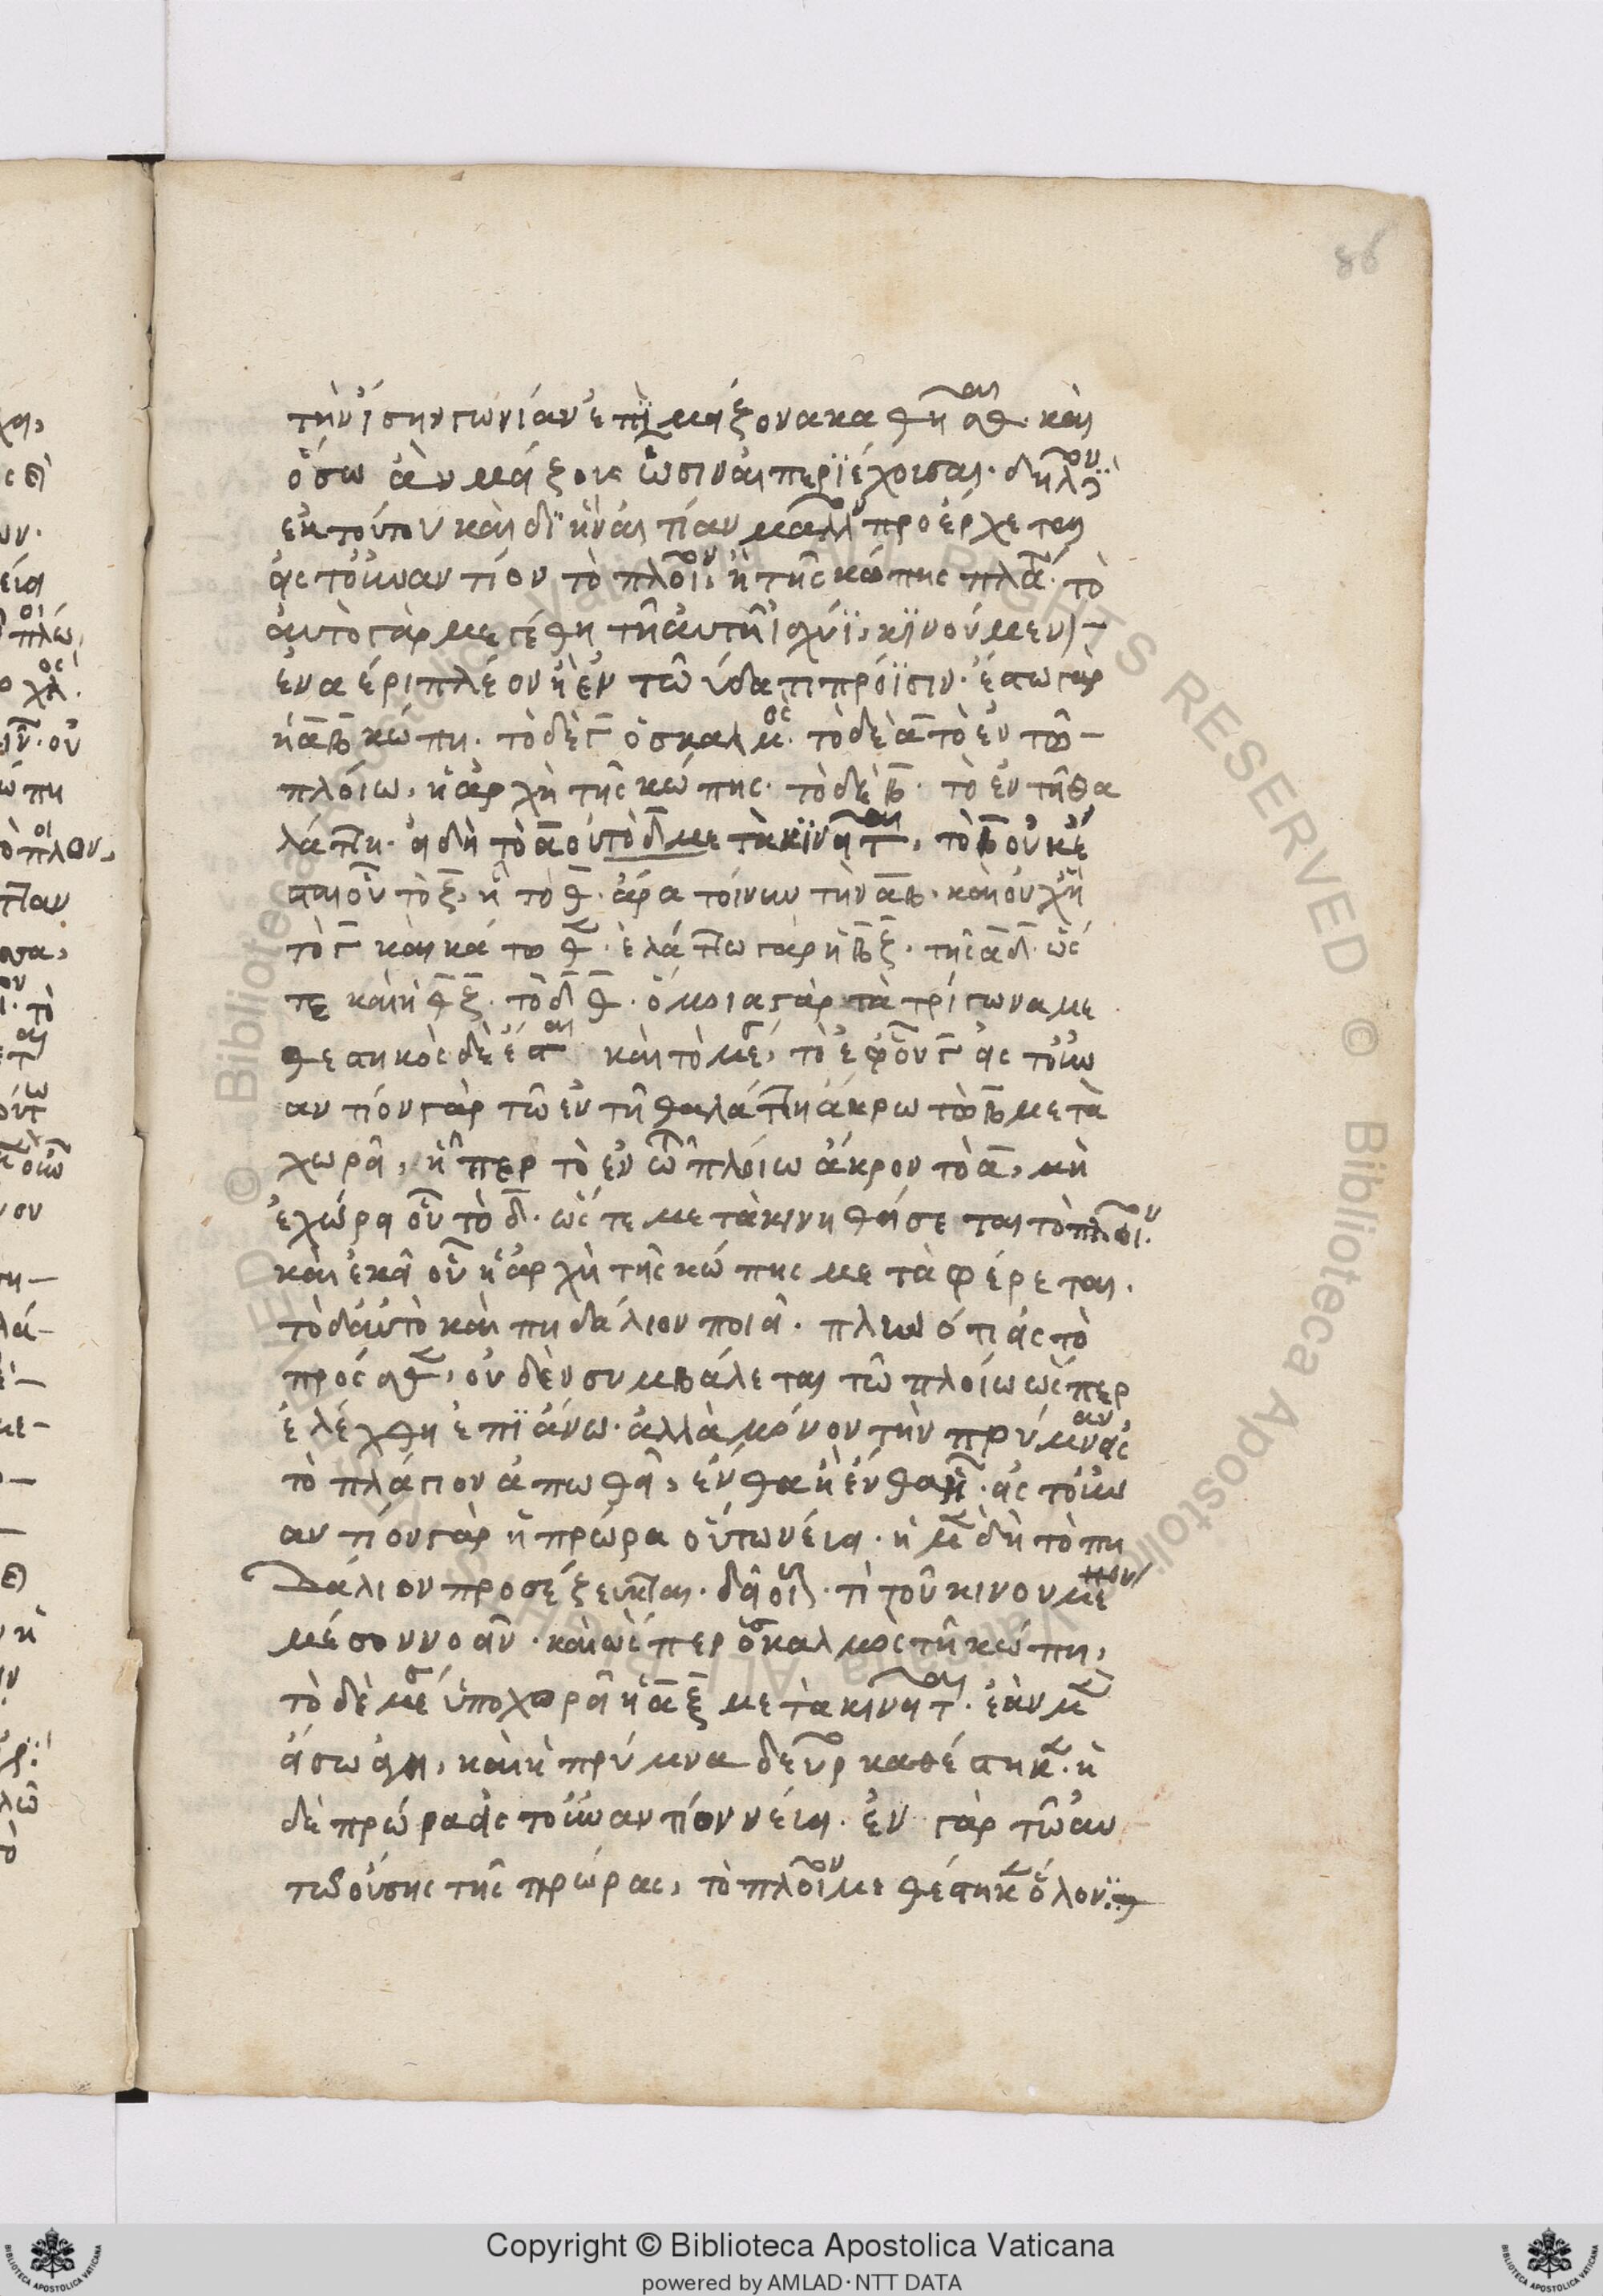 86
τὴν ἴσην γωνίαν ἐπὶ μείζονα καθῆσθαι. καὶ
ὅσω ἂν μείζους ὦσιν αἱ περιέχουσαι. δῆλον
ἐκ τούτου καὶ δι' ἣν αἰτίαν μᾶλλον προέρχεται
εἰς τοὐναντίον τὸ πλοῖον, ἢ τῆς κώπης πλάτη. τὸ
αὐτὸ γὰρ μέγεθη τῆ αὐτῆ ἰσχύϊ, κινούμενον
ἐν ἀέρι πλέον ἢ ἐν τῶ ὕδατι πρόϊσιν. ἔστω γὰρ
ἡ αβ κώπη. τὸ δὲ γ ὁ σκαλμός. τὸ δὲ α τὸ ἐν τῶ
πλοίω, ἡ ἀρχὴ τῆς κώπης. τὸ δὲ β. τὸ ἐν τῆ θα
λάττη. εἰ δὴ τὸ α οὗ τὸ δ μετακινεῖται, τὸ β οὐκ ἔ
σται οὗ τὸ ξ, ἢ τὸ θ.
τὸ γ καὶ κάτωθεν. ἐλάττω γὰρ ἡ βξ. τῆς αδ. ὥς
τε καὶ ἡ θξ. τὸ δθ. ὅμοια γὰρ τὰ τρίγωνα με
θεστηκὸς δὲ ἔσται καὶ τὸ μέσον, τὸ ἐφ' οὗ γ εἰς τοὐν
αντίον γὰρ τῶ ἐν τῆ θαλάττη ἄκρω τῶ β μετα
χωρεῖ, ἧπερ τὸ ἐν τῶ πλοίω ἄκρον τὸ α, μὴ
ἐχώρει οὗ τὸ δ. ὥστε μετακινηθήσεται τὸ πλοῖον.
καὶ ἐκεῖ οὗ ἡ ἀρχὴ τῆς κώπης μεταφέρεται.
τὸ δ' αὐτὸ καὶ πηδάλιον ποιεῖ. πλὴν ὅτι εἰς τὸ
πρόσθεν, οὐδὲν συμβάλεται τῶ πλοίω ὥσπερ
ἐλέχθη ἐπὶ ἄνω. ἀλλὰ μόνον τὴν πρύμναν εἰς
τὸ πλάγιον ἀπωθεῖ, ἔνθα ἢ ἔνθα ᾖ. εἰς τοὐν
αντίον γὰρ ἡ πρώρα οὕτω νεύει. ἧ μὲν δὴ τὸ πη
δάλιον προσέζευκται. δεῖ οἷον τὶ τοῦ κινουμένου
μέσον νοεῖν. καὶ ὥσπερ ὁ σκαλμὸς τῆ κώπη,
τὸ δὲ μέσον ὑποχωρεῖ ἡ αξ μετακινεῖται. ἐὰν μὲν
εἴσω ἄγη, καὶ ἡ πρύμνα δεῦρο καθέστηκεν. ἡ
δὲ πρώρα εἰς τοὐναντίον νεύει. ἐν γὰρ τῶ αὐ
τῶ οὔσης τῆς πρώρας, τὸ πλοῖον μεθέστηκεν ὅλον
Copyright © Biblioteca Apostolica Vaticana
powered by AMLAD·NTT DATA